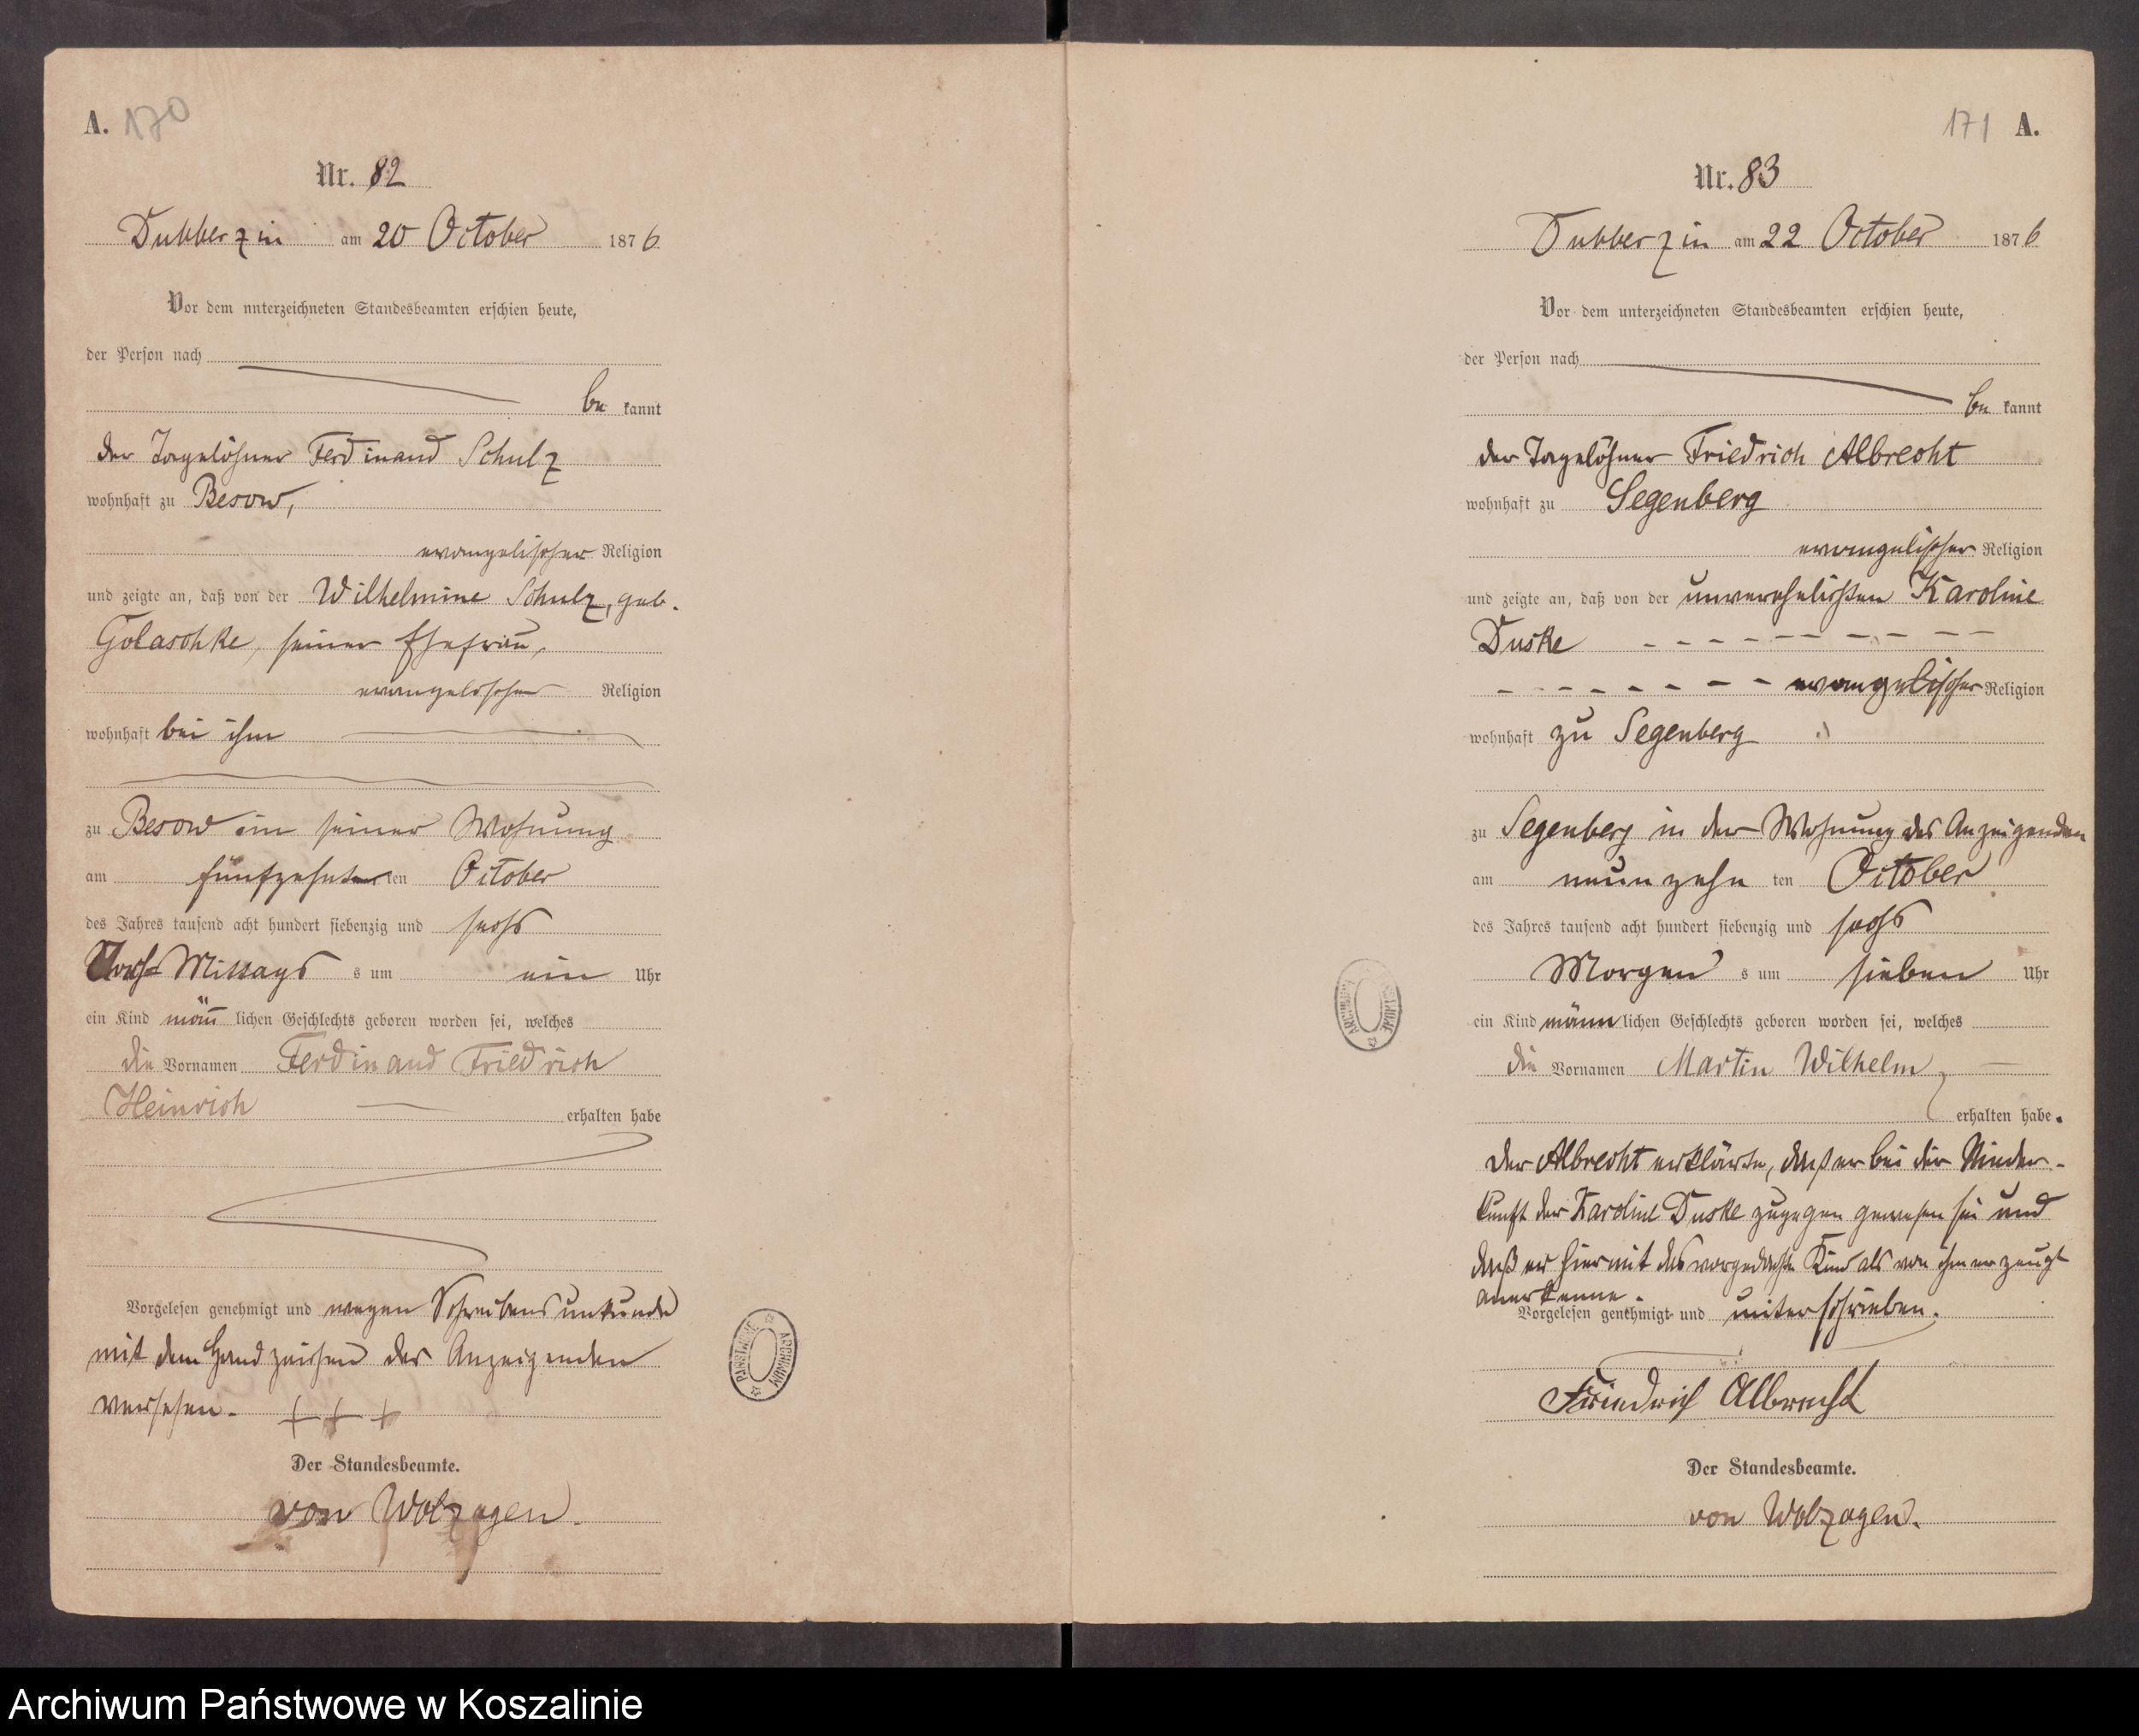 A. 170
Nr. 82
Dubberzin am 20 October 1876
Vor dem unterzeichneten Standesbeamten erschien heute,
der Person nach
be kannt
der Tagelöhner Ferdinand Schulz
wohnhaft zu Besow,
evangelischer Religion
und zeigte an, daß von der Wilhelmine Schulz, geb.
Golaschke, seiner Ehefrau,
evangelischer Religion
wohnhaft bei ihm
zu Besow in seiner Wohnung
am fünfzehnten ten October
des Jahres tausend acht hundert siebenzig und sechs
Nach Mittags s um ein Uhr
ein Kind männ lichen Geschlechts geboren worden sei, welches
die Vornamen Ferdinand Friedrich
Heinrich erhalten habe
Vorgelesen genehmigt und wegen Schreibensunkunde
mit dem Handzeichen des Anzeigenden
versehen. + + +
Der Standesbeamte.
von Wolzogen.
171 A.
Nr. 83
Dubberzin am 22 October 1876
Vor dem unterzeichneten Standesbeamten erschien heute,
der Person nach
be kannt
der Tagelöhner Friedrich Albrecht
wohnhaft zu Segenberg
evangelischer Religion
und zeigte an, daß von der unverehelichten Karoline
Duske
evangelischer Religion
wohnhaft zu Segenberg
zu Segenberg in der Wohnung des Anzeigenden
am neunzehn ten October
des Jahres tausend acht hundert siebenzig und sechs
Morgen s um sieben Uhr
ein Kind männ lichen Geschlechts geboren worden sei, welches
die Vornamen Martin Wilhelm
erhalten habe.
Der Albrecht erklärte, daß er bei der Nieder-
kunft der Karoline Duske zugegen gewesen sei und
daß er hiermit das vorgedachte Kind als von ihm erzeugt
anerkenne.
Vorgelesen genehmigt und unterschrieben.
Friedrich Albrecht
Der Standesbeamte.
von Wolzogen.
ARCHIWUM PAŃSTWOWE
Archiwum Państwowe w Koszalinie